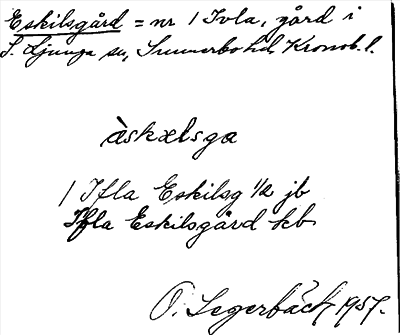 Eskilsgård = nr 1 Ivla, gård i
S. Ljunga sn, Sunnerbo hd, Kronob. l.
àskælsga
1 Ifla Eskilsg 1/2 jb
Ifla Eskilsgård kb
O. Segerbäck, 1957.